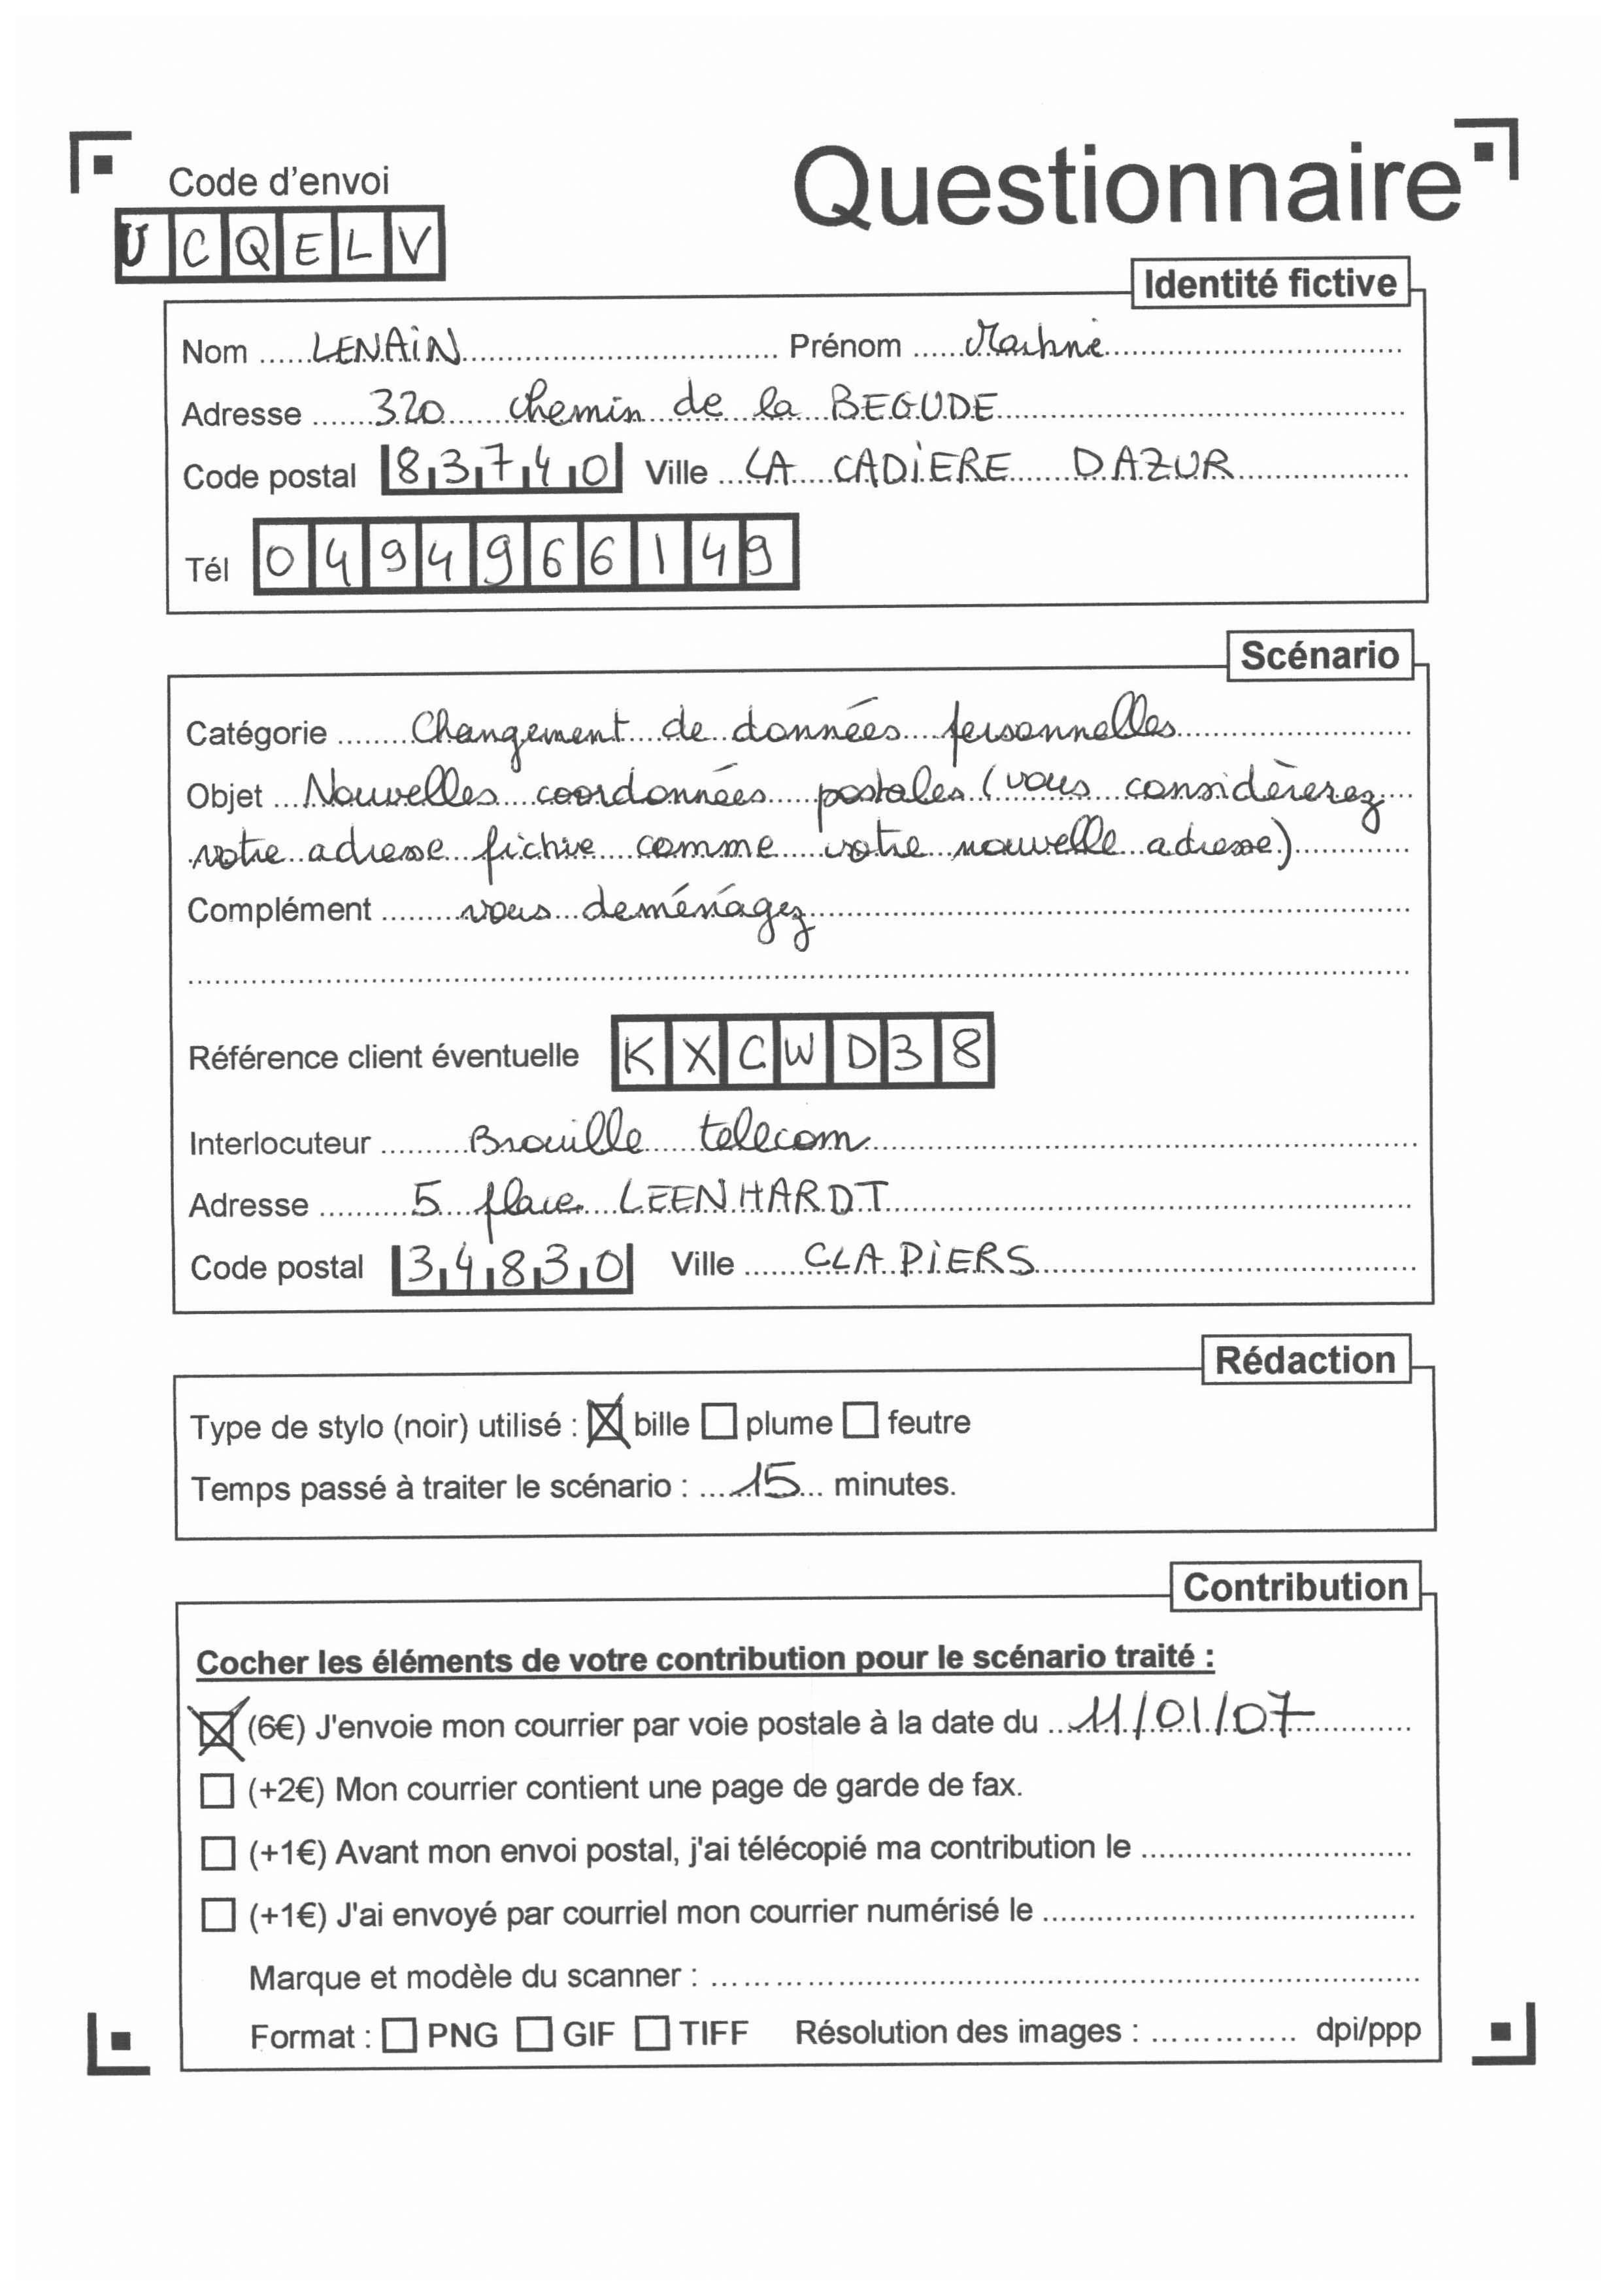 Questionnaire
Code d'envoi
UCQELV
Identité fictive
Nom ......LENAIN.................................. Prénom ......Martine..............................
Adresse .......320 chemin de la BEGUDE...............................................
Code postal 83740 Ville ....LA CADIERE DAZUR...................
Tél 0494966149
Scénario
Catégorie ........Changement de données personnelles..........................
Objet ....Nouvelles coordonnées postales (vous considèrerez
votre adresse fictive comme votre nouvelle adresse)..............
Complément ........vous deménagez.................................................................
....................................................................................................................................
Référence client éventuelle KXCWD38
Interlocuteur ..........Brouille telecom..............................................................
Adresse ...........5 place LEENHARDT..........................................................
Code postal 34830 Ville .......CLAPIERS..........................................
Rédaction
Type de stylo (noir) utilisé : ☒ bille ☐ plume ☐ feutre
Temps passé à traiter le scénario : ....15... minutes.
Contribution
Cocher les éléments de votre contribution pour le scénario traité :
☒ (6€) J'envoie mon courrier par voie postale à la date du ...11/01/07...........
☐ (+2€) Mon courrier contient une page de garde de fax.
☐ (+1€) Avant mon envoi postal, j'ai télécopié ma contribution le ..............................
☐ (+1€) J'ai envoyé par courriel mon courrier numérisé le .........................................
Marque et modèle du scanner : ...............................................................................
Format : ☐ PNG ☐ GIF ☐ TIFF Résolution des images : .............. dpi/ppp